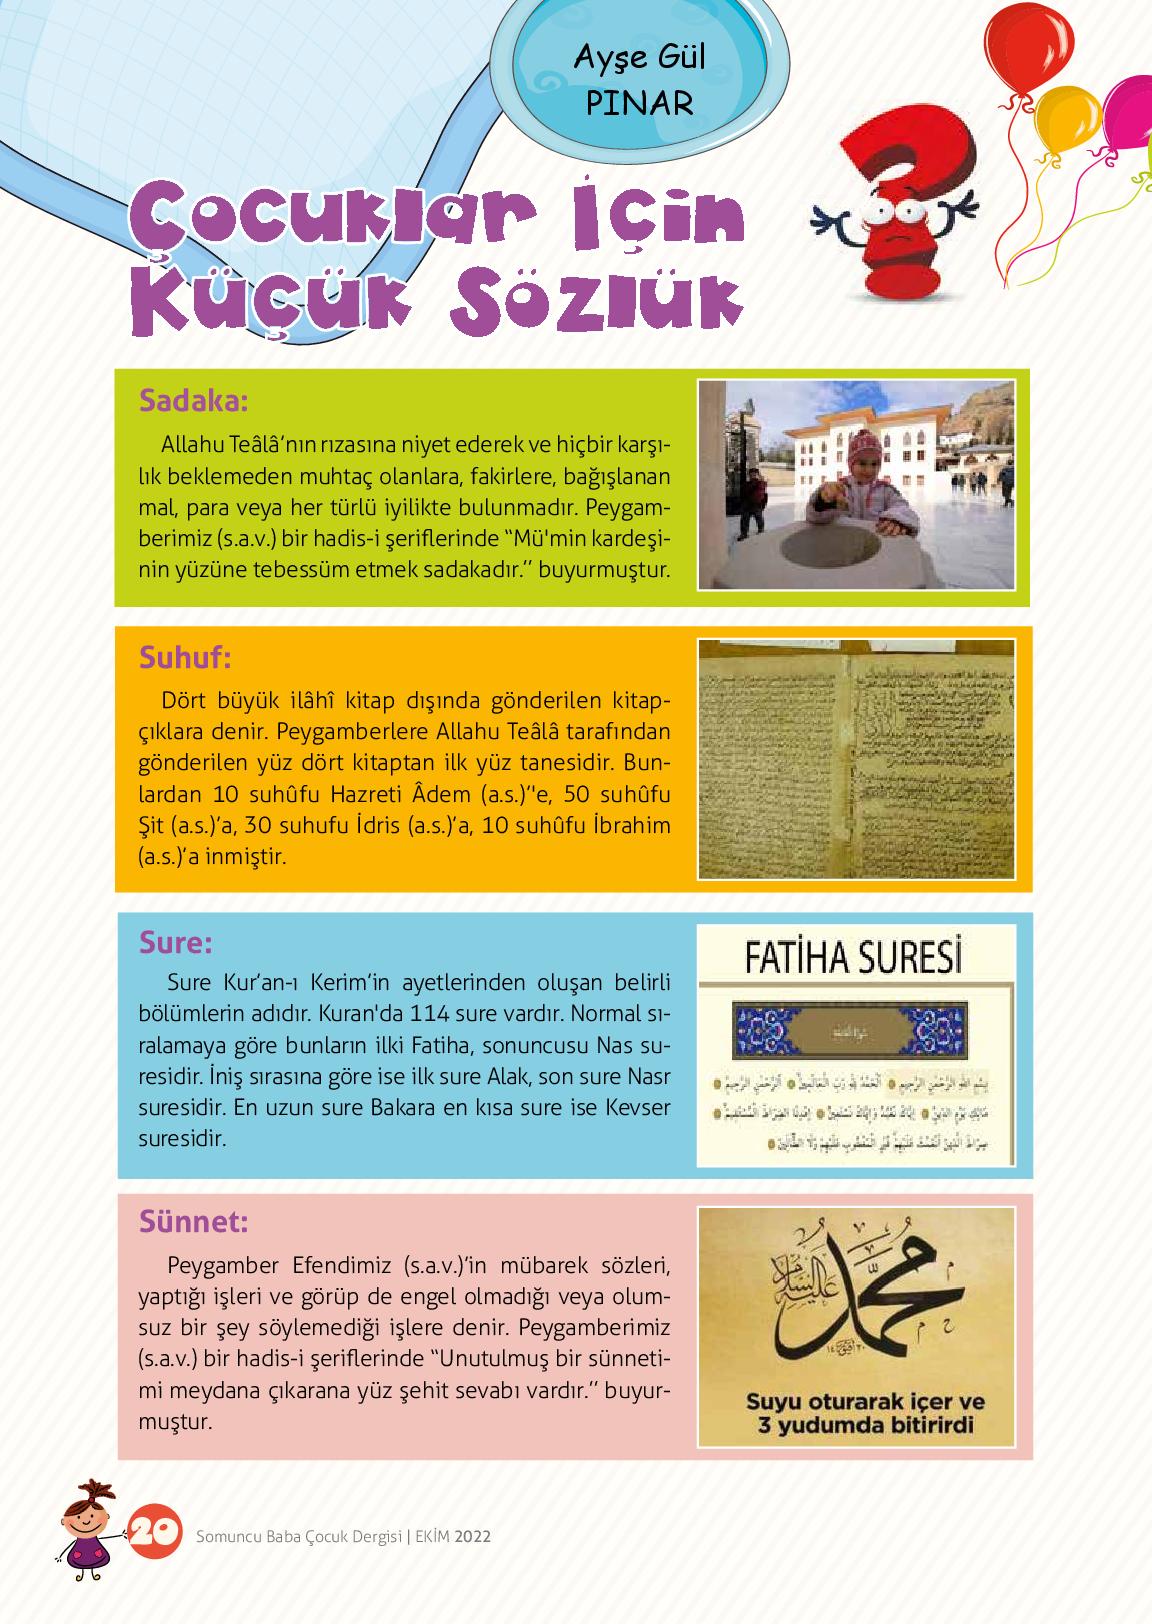 Ayşe Gül
PINAR
Çocuklar İçin
Küçük Sözlük
Sadaka:
Allahu Teâlâ’nın rızasına niyet ederek ve hiçbir karşı-
lık beklemeden muhtaç olanlara, fakirlere, bağışlanan
mal, para veya her türlü iyilikte bulunmadır. Peygam-
berimiz (s.a.v.) bir hadis-i şeriflerinde “Mü'min kardeşi-
nin yüzüne tebessüm etmek sadakadır.’’ buyurmuştur.
Suhuf:
Dört büyük ilâhî kitap dışında gönderilen kitap-
çıklara denir. Peygamberlere Allahu Teâlâ tarafından
gönderilen yüz dört kitaptan ilk yüz tanesidir. Bun-
lardan 10 suhûfu Hazreti Âdem (a.s.)’'e, 50 suhûfu
Şit (a.s.)’a, 30 suhufu İdris (a.s.)’a, 10 suhûfu İbrahim
(a.s.)’a inmiştir.
Sure:
Sure Kur’an-ı Kerim’in ayetlerinden oluşan belirli
bölümlerin adıdır. Kuran'da 114 sure vardır. Normal sı-
ralamaya göre bunların ilki Fatiha, sonuncusu Nas su-
residir. İniş sırasına göre ise ilk sure Alak, son sure Nasr
suresidir. En uzun sure Bakara en kısa sure ise Kevser
suresidir.
FATİHA SURESİ
بِسْمِ اللهِ الرَّحْمٰنِ الرَّحِيمِ اَلْحَمْدُ لِلّٰهِ رَبِّ الْعَالَمِينَ اَلرَّحْمٰنِ الرَّحِيمِ
مَالِكِ يَوْمِ الدِّينِ اِيَّاكَ نَعْبُدُ وَاِيَّاكَ نَسْتَعِينُ اِهْدِنَا الصِّرَاطَ الْمُسْتَقِيمَ
صِرَاطَ الَّذِينَ اَنْعَمْتَ عَلَيْهِمْ غَيْرِ الْمَغْضُوبِ عَلَيْهِمْ وَلَا الضَّالِّينَ
Sünnet:
Peygamber Efendimiz (s.a.v.)’in mübarek sözleri,
yaptığı işleri ve görüp de engel olmadığı veya olum-
suz bir şey söylemediği işlere denir. Peygamberimiz
(s.a.v.) bir hadis-i şeriflerinde “Unutulmuş bir sünneti-
mi meydana çıkarana yüz şehit sevabı vardır.’’ buyur-
muştur.
محمد
عليه السلام
Suyu oturarak içer ve
3 yudumda bitirirdi
20 Somuncu Baba Çocuk Dergisi | EKİM 2022